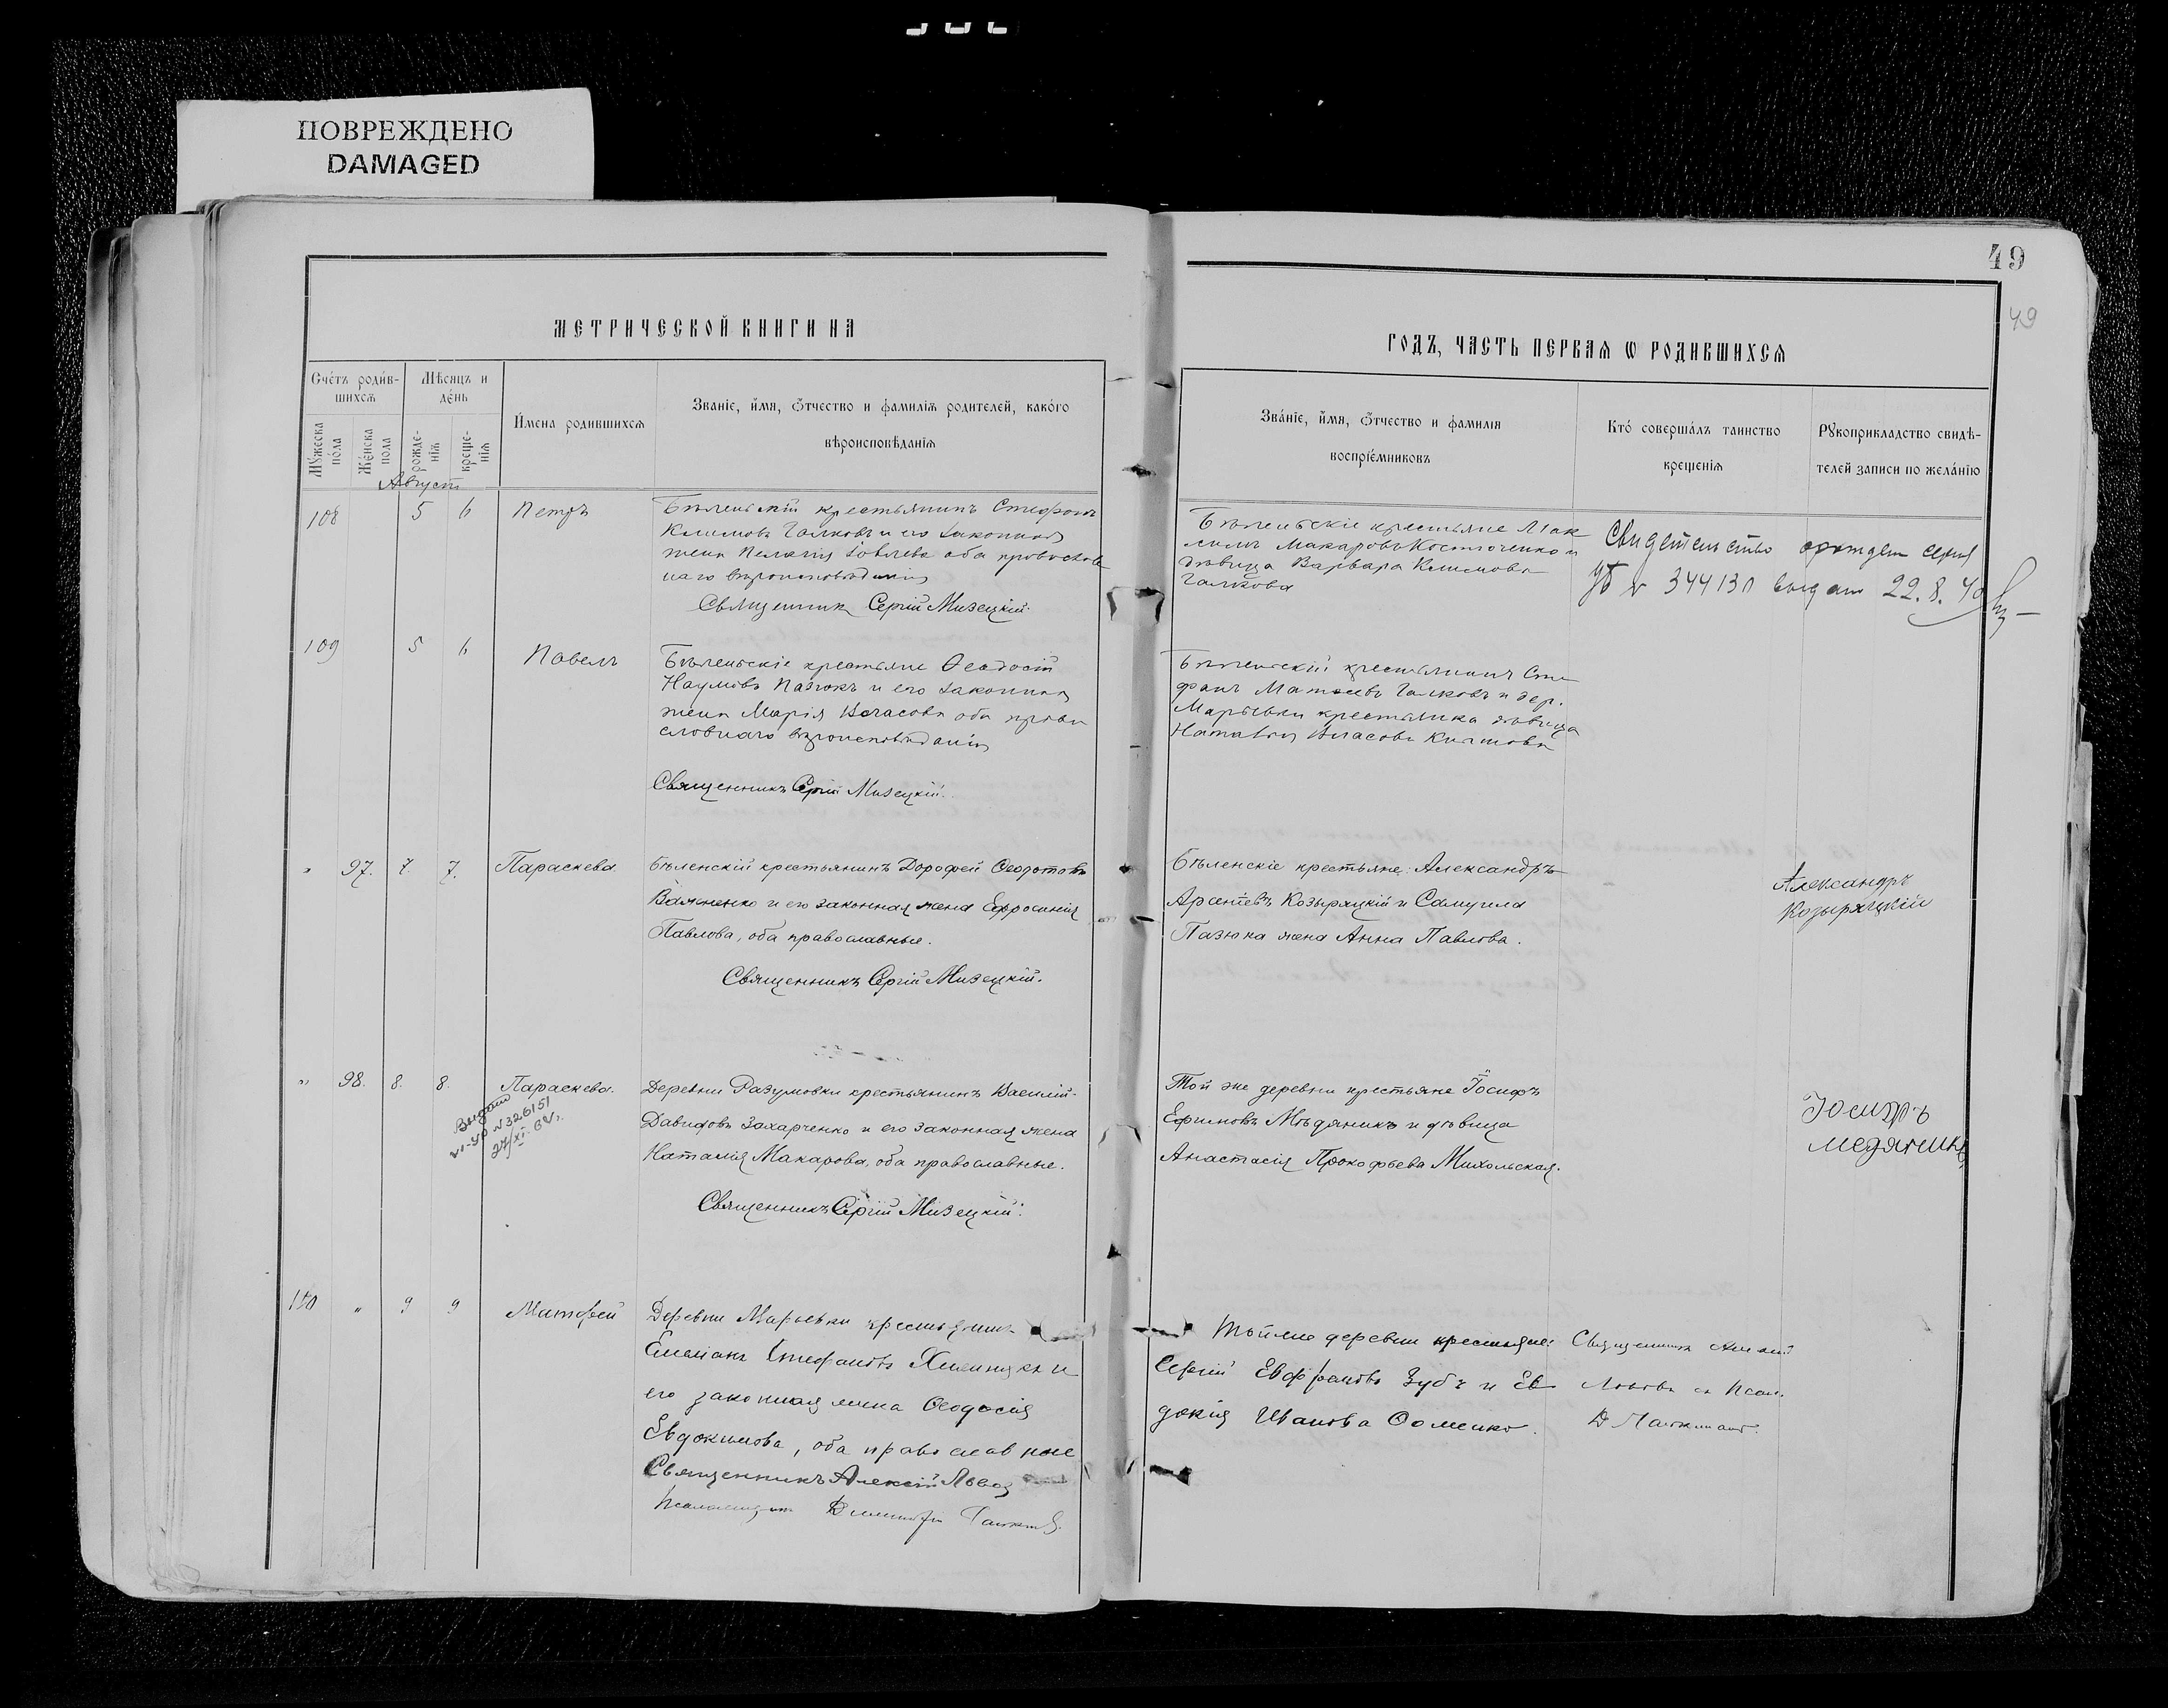 ПОВРЕЖДЕНО
DAMAGED
49
49
МЕТРИЧЕСКОЙ КНИГИ НА
ГОДЪ, ЧАСТЬ ПЕРВАЯ Ѡ РОДИВШИХСѦ
Счéтъ роди́в-
шихсѧ
Мѣсяцъ и
де́нь
Му́жеска
по́ла
Же́нска
пола
рожде-
нїѧ
креще-
нїѧ
И́мена родившихсѧ
Званїе, и́мя, ѻ҆́тчество и фамилїѧ родителей, како́го
вѣроисповѣданїѧ
Зва́нїе, и́мя, ѻ҆́тчество и фамилїѧ
воспрїе́мниковъ
Кто́ соверша́лъ таинство
крещенїѧ
Рꙋкоприкладство свидѣ-
телей записи по жела́нїю
Августъ
108 5 6 Петръ
Бѣленькій крестьянинъ Стефанъ
Климовъ Галковъ и его законная
жена Пелагія
Священникъ Сергій Мизецкій.
Бѣленьскіе крестьяне Мак
симъ Макаровъ Костюченко и
дѣвица Варвара Климова
Галкова
Свидетельство
УБ № 344130 выдан 22.8.40
109 5 6 Павелъ
Бѣленьскіе крестьяне Ѳеодосій
Наумовъ Пазюкъ и его законная
жена Марія Власова оба право
славнаго вѣроисповѣданія
Священникъ Сергій Мизецкій.
Бѣленьскій крестьянинъ Сте
фанъ Матѳеевъ Галковъ и дер.
Марьевки крестьянка дѣвица
Наталія Власова
" 97. 7. 7. Параскева.
Бѣленскій крестьянинъ Дорофей Ѳеодотовъ
Важненко и его законная жена Ефросинія
Павлова, оба православные.
Священникъ Сергій Мизецкій.
Бѣленскіе крестьяне: Александръ
Арсеніевъ Козыряцкій и Самуила
Пазюка жена Анна Павлова.
Александръ
Козыряцкій
" 98. 8. 8. Параскева.
№ 326151
Деревни Разумовки крестьянинъ Василій
Давидовъ Захарченко и его законная жена
Наталія Макарова, оба православные.
Священникъ Сергій Мизецкій.
Той же деревни крестьяне Іосифъ
Ефимовъ Мѣдяникъ и дѣвица
Анастасія Прокофьева Михольская.
Іосифъ
Медяникъ
110 " 9 9 Матфей
Деревни Марьевки крестьянинъ
Емеліанъ Стефановъ и
его законная жена Ѳеодосія
Евдокимова, оба православные
Священникъ Алексій Львов
Псаломщикъ Димитрій
Той же деревни крестьяне:
Сергій Зубъ и Ев
докія Иванова Фоменко.
Священникъ Алексій
Львовъ съ Псал.